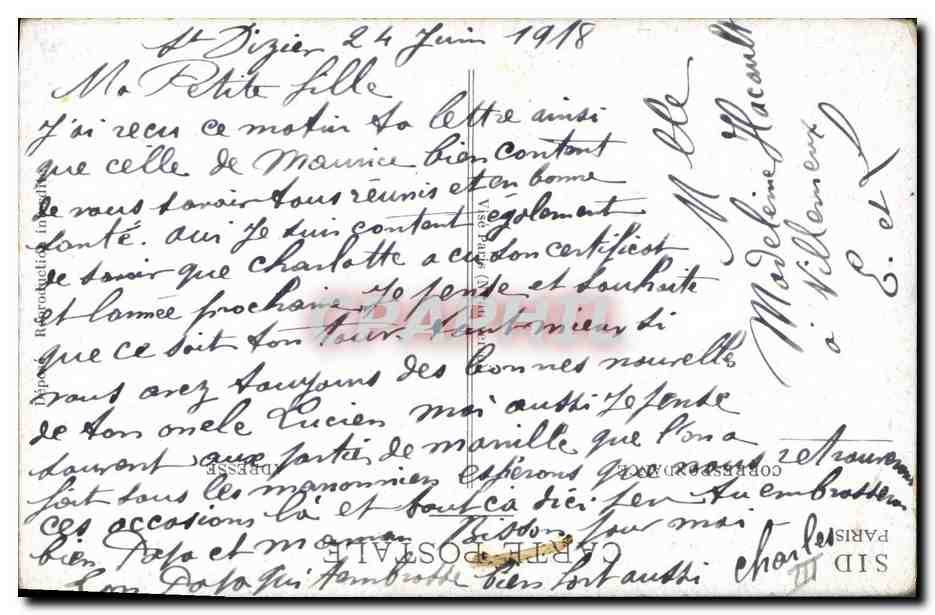 St Dizier 24 Juin 1918
Ma Petite fille
J'ai recu ce matin ta lettre ainsi
que celle de Maurice bien content
de vous savoir tous réunis et en bonne
santé. Oui Je suis content également
de savoir que Charlotte a eu son certificat
et l'année prochaine Je pense et souhaite
que ce soit ton tour. tant mieux si
vous avez toujours des bonnes nouvelles
de ton oncle Lucien moi aussi Je pense
souvent aux parties de manille que l'on a
fait sous les maronniers espérons que nous retrouverons
ces occasions là et tout ça d'ici peu tu embrasseras
bien Papa et maman Bisson pour moi
Ton Papa qui t'embrasse bien fort aussi
Charles
III
Mlle
Madeleine Hacault
à Villemeux
E. et L
Déposé Reproduction interdite
Visé Paris
CORRESPONDANCE
ADRESSE
CARTE POSTALE
SID
PARIS
CPAPHIL